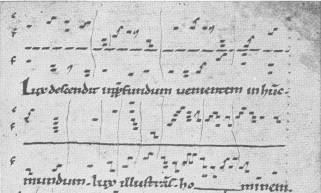 Lux descendit inp̄fundum uementem inhūc
mundum. lux illustrat. ho minem